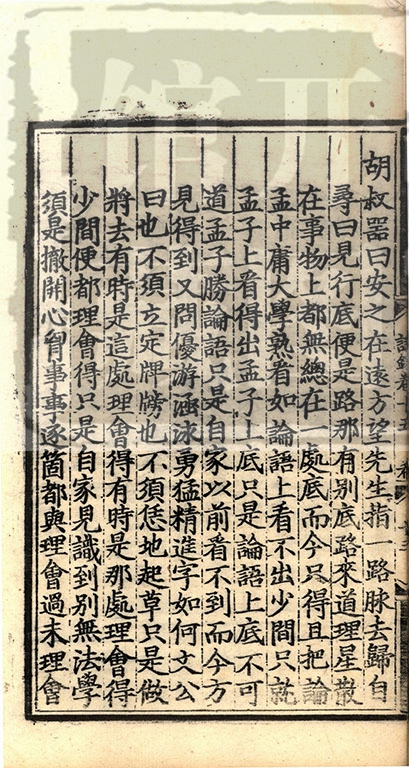 胡叔器曰安之在遠方望先生指一路脉去歸自
尋曰見行底便是路那有別底路來道理星散
在事物上都無總在一處底而今只得且把論
孟中庸大學熟看如論語上看不出少間只就
孟子上看得出孟子上底只是論語上底不可
道孟子勝論語只是自家以前看不到而今方
見得到又問優游涵泳勇猛精進字如何文公
曰也不須立定牌牓也不須恁地起草只是做
將去有時是這處理會得有時是那處理會得
少間便都理會得只是自家見識到別無法學
須是撤開心胷事事逐箇都與理會過未理會